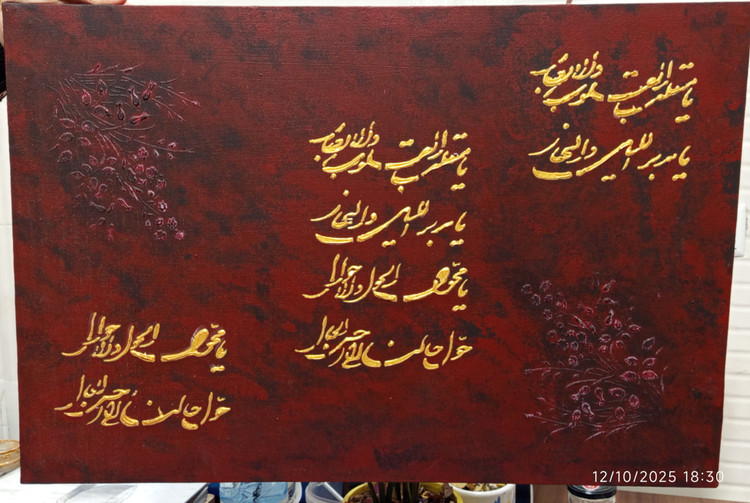 یا مقلب القلوب والابصار
یا مدبر اللیل والنهار
یا مقلب القلوب والابصار
یا مدبر اللیل والنهار
یا محول الحول والاحوال
حول حالنا الی احسن الحال
یا محول الحول والاحوال
حول حالنا الی احسن الحال
12/10/2025 18:30